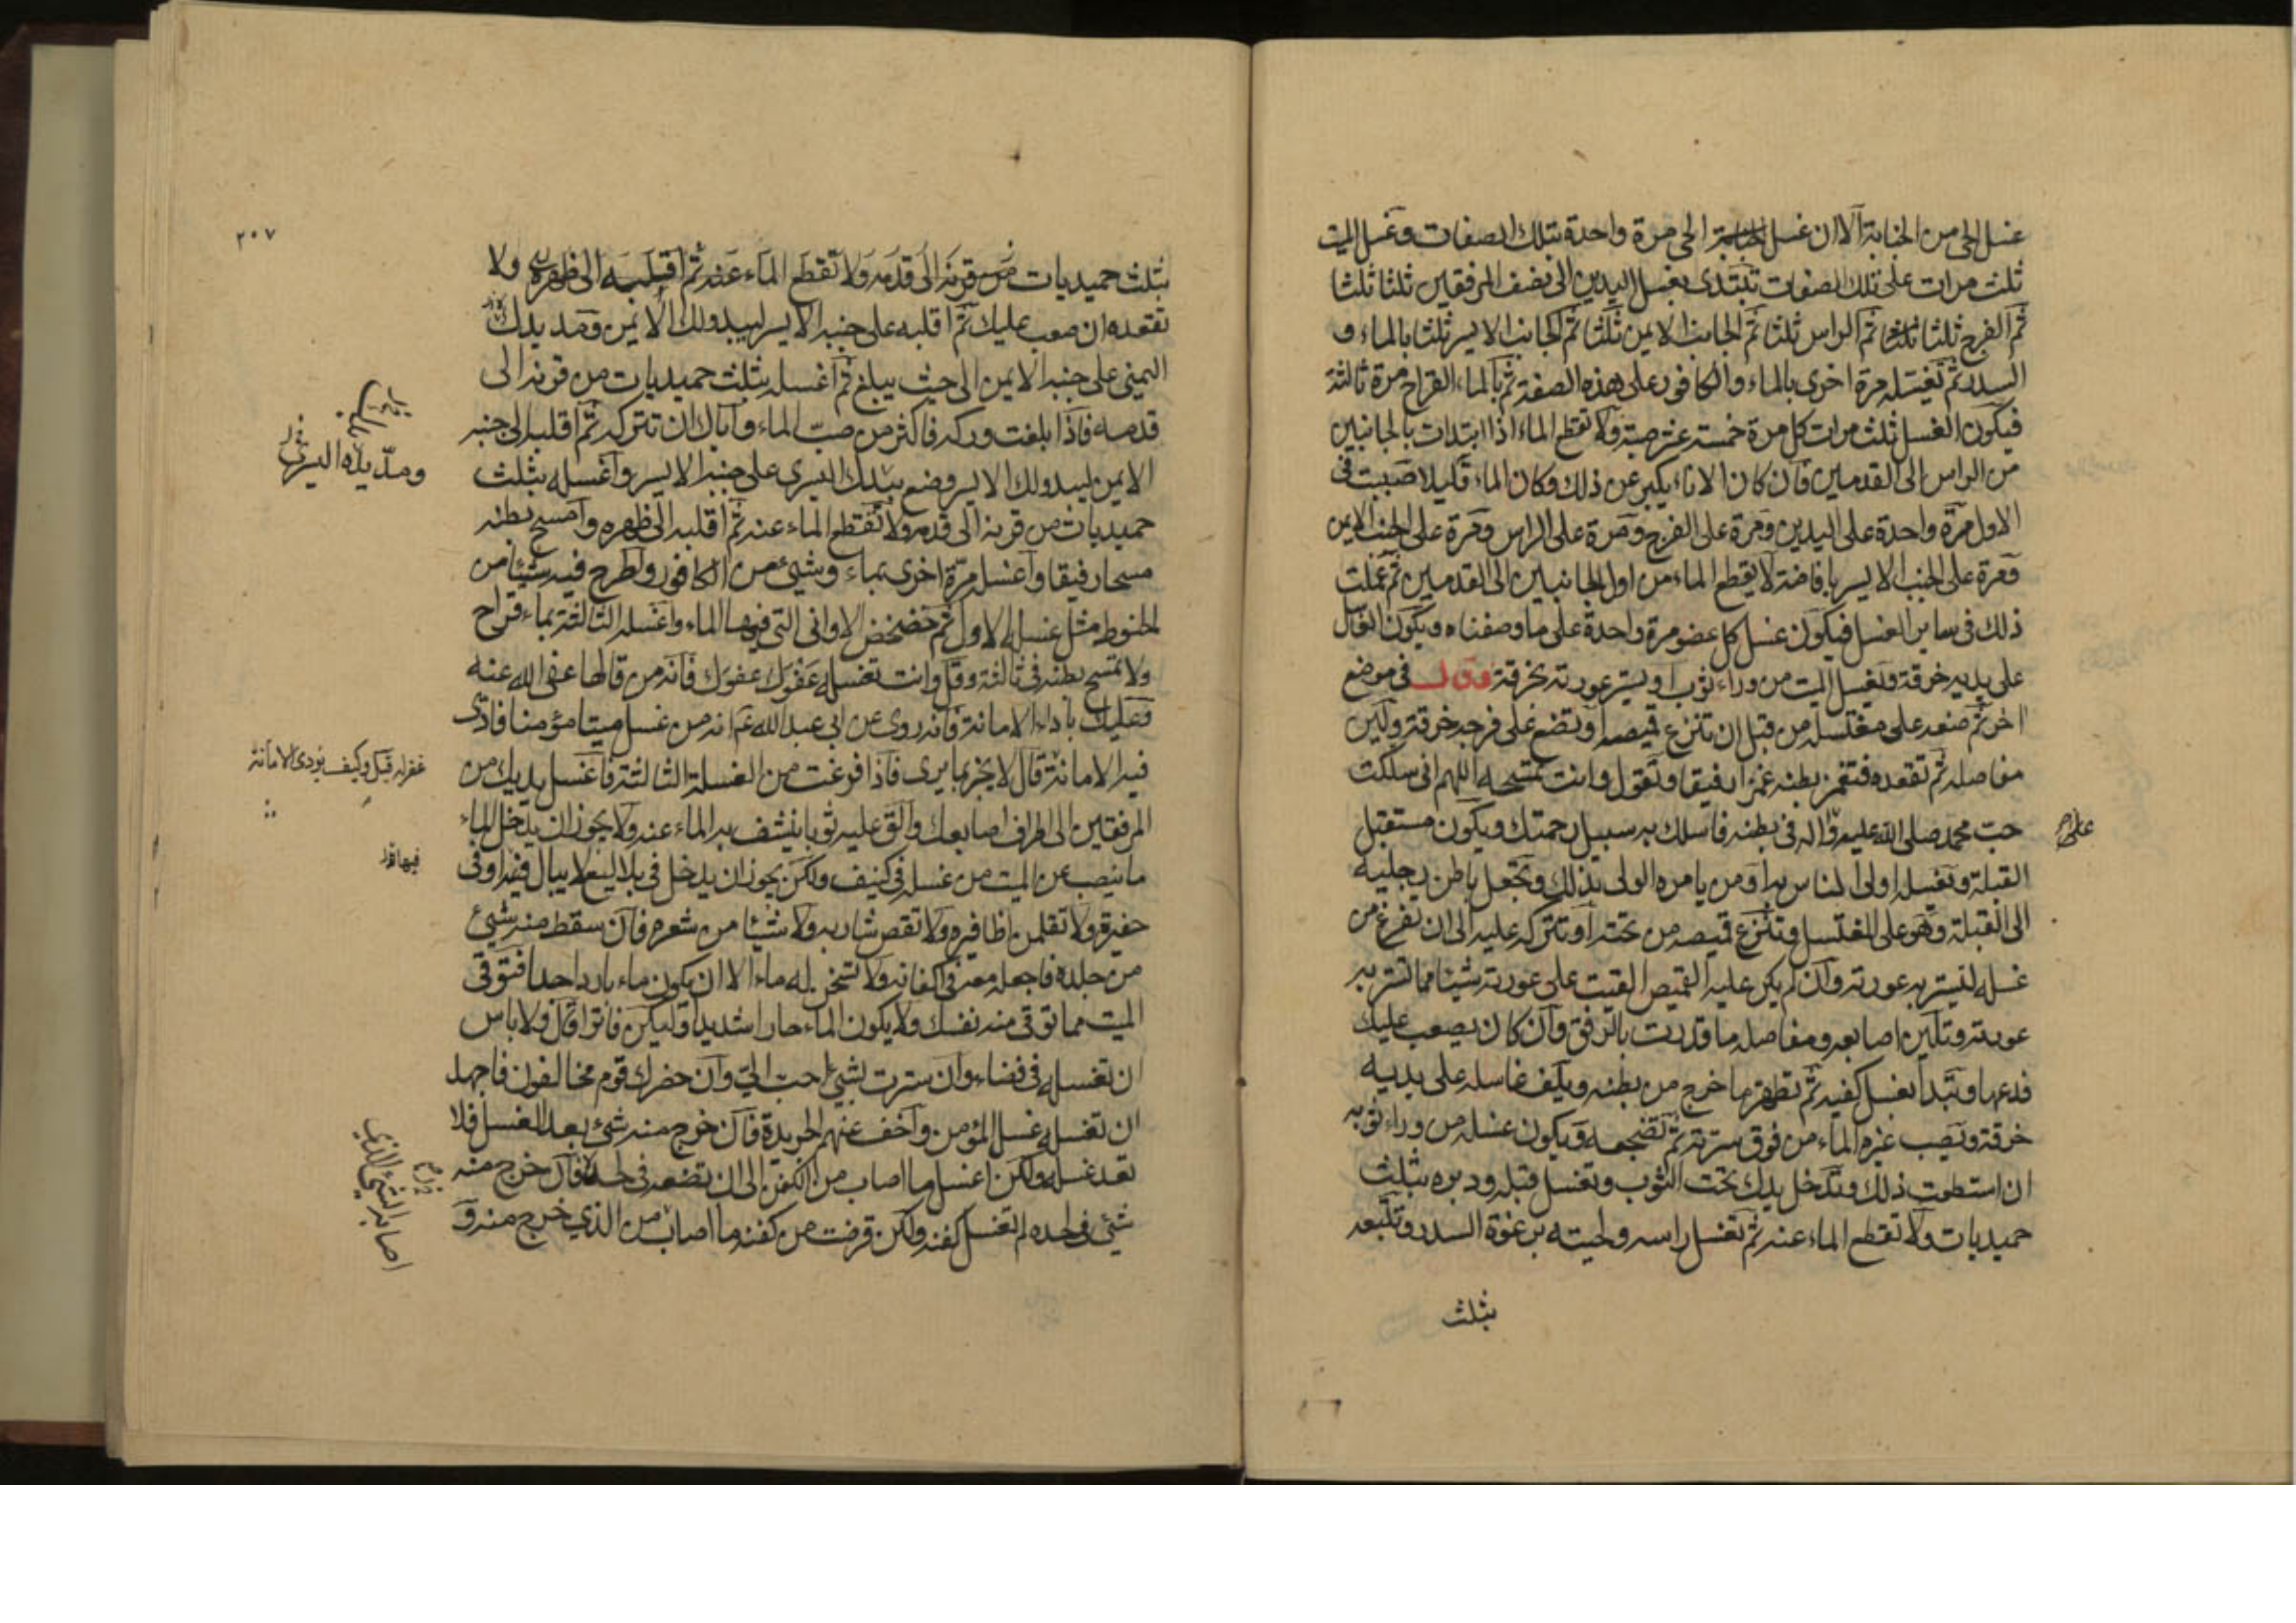 غسل الحي من الجنابة الا ان غسل الحي مرة واحدة بتلك الصفات وغسل الميت
ثلث مرات على تلك الصفات تبتدى بغسل اليدين الى نصف المرفقين ثلثا ثلثا
ثم الفرج ثلثا ثلثا ثم الراس ثلثا ثم الجانب الايمن ثلثا ثم الجانب الايسر ثلثا بالماء و
السدر ثم تغسله مرة اخرى بالماء والكافور على هذه الصفة ثم بالماء القراح مرة ثالثة
فيكون الغسل ثلث مرات كل مرة خمسة عشر صبة ولا تقطع الماء اذا ابتدات بالجانبين
من الراس الى القدمين فان كان الاناء يكبر عن ذلك وكان الماء قليلا صببت فى
الاول مرة واحدة على اليدين ومرة على الفرج ومرة على الراس ومرة على الجنب الايمن
ومرة على الجنب الايسر بافاضة لا يقطع الماء من اول الجانبين الى القدمين ثم عملت
ذلك فى ساير الغسل فيكون غسل كل عضو مرة واحدة على ما وصفناه ويكون الغاسل
على يديه خرقة وتغسل الميت من وراء ثوب او يستر عورته بخرقة وقال فى موضع
اخر ثم ضعه على مغتسله من قبل ان تنزع قميصه او تضع على فرجه خرقة ولين
مفاصله ثم تقعده فتغمز بطنه غمزا رفيقا وتقول وانت تمسحه اللهم انى سلكت
حب محمد صلى الله عليه واله فى بطنه فاسلك به سبيل رحمتك ويكون مستقبل
القبلة وتغسله اولى الناس به او من يامره الولى بذلك وتجعل باطن رجليه
الى القبلة وهو على المغتسل وتنزع قميصه من تحته او تتركه عليه الى ان تفرغ من
غسله لتستر به عورته وان لم يكن عليه القميص القيت على عورته شيئا مما تستر به
عورته وتلين اصابعه ومفاصله ما قدرت بالرفق وان كان يصعب عليك
فدعها وتبدأ بغسل كفيه ثم تطهر ما خرج من بطنه ويلف غاسله على يديه
خرقة وتصب غيره الماء من فوق سرته ثم تضجعه ويكون غسله من وراء ثوبه
ان استطعت ذلك وتدخل يدك تحت الثوب وتغسل قبله ودبره بثلث
حميديات ولا تقطع الماء عنه ثم تغسل راسه ولحيته برغوة السدر وتتبعه
بثلث
٢٠٧
بثلث حميديات من قرنه الى قدمه ولا تقطع الماء عنه ثم اقلبه الى ظهره ولا
تقعده ان صعب عليك ثم اقلبه على جنبه الايسر ليبدو لك الايمن ومد يدك
اليمنى على جنبه الايمن الى حيث يبلغ ثم اغسله بثلث حميديات من قرنه الى
قدمه فاذا بلغت وركه فاكثر من صب الماء واياك ان تتركه ثم اقلبه الى جنبه
الايمن ليبدو لك الايسر وضع بيدك اليسرى على جنبه الايسر واغسله بثلث
ومد يده اليسرى
حميديات من قرنه الى قدمه ولا تقطع الماء عنه ثم اقلبه الى ظهره وامسح بطنه
مسحا رفيقا واغسله مرة اخرى بماء وشىء من الكافور واطرح فيه شيئا من
الحنوط مثل غسله الاول ثم خضخض الاوانى التى فيها الماء واغسله الثالثة بماء قراح
ولا تمسح بطنه فى ثالثة وقل وانت تغسله عفوك عفوك فانه من قالها عفى الله عنه
وعليك باداء الامانة فانه روى عن ابى عبد الله ع انه من غسل ميتا مؤمنا فادى
فيه الامانة قال لا يخبر بما يرى فاذا فرغت من الغسلة الثالثة فاغسل يديك من
غفر له قيل وكيف يؤدى الامانة
المرفقين الى اطراف اصابعك والق عليه ثوبا ينشف به الماء عنه ولا يجوز ان يدخل الماء
ما ينصب عن الميت من غسله فى كنيف ولكن يجوز ان يدخل فى بلاليع لا يبال فيها وفى
حفيرة ولا تقلمن اظافيره ولا تقص شاربه ولا شيئا من شعره فان سقط منه شىء
من جلده فاجعله معه فى اكفانه ولا تسخن له ماء الا ان يكون ماء باردا جدا فتوقى
الميت مما توقى منه نفسك ولا يكون الماء حارا شديدا وليكن فاترا قال ولا باس
ان تغسله فى فضاء وان سترت بشىء احب الى وان حضرك قوم مخالفون فاجهد
ان تغسله غسل المؤمن واخف عنهم الجريدة فان خرج منه شىء بعد الغسل فلا
تعد غسله ولكن اغسل ما اصاب من الكفن الى ان تضعه فى لحده فان خرج منه
شىء فى لحده لم تغسل كفنه ولكن قرضت من كفنه ما اصاب من الذى خرج منه و